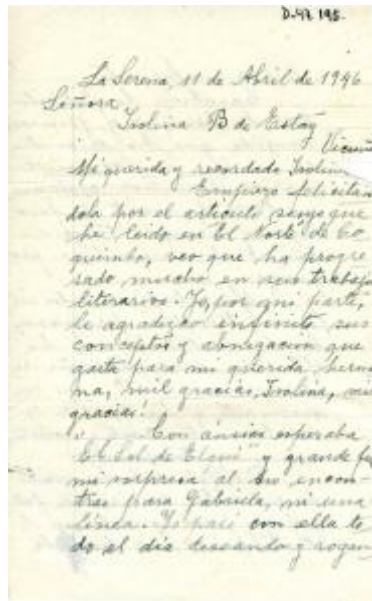 D-47.195.
La Serena, 11 de Abril de 1946
Señora
Isolina B de Estay
Vicuña
Mi querida y recordada Isolina
Empiezo felicitan
dola por el articulo suyo que
he leido en El Norte de Co
quimbo, veo que ha progre
sado mucho en sus trabajos
literarios. Yo, por mi parte,
le agradezco infinito sus
conceptos y abnegacion que
gasta para mi querida herma
na, mil gracias, Isolina, mil
gracias!
Con ansias esperaba
"El Sol de Elqui" y grande fue
mi sorpresa al no encon-
trar para Gabriela, ni una
linea. Yo paso con ella to
do el dia deseando y rogan